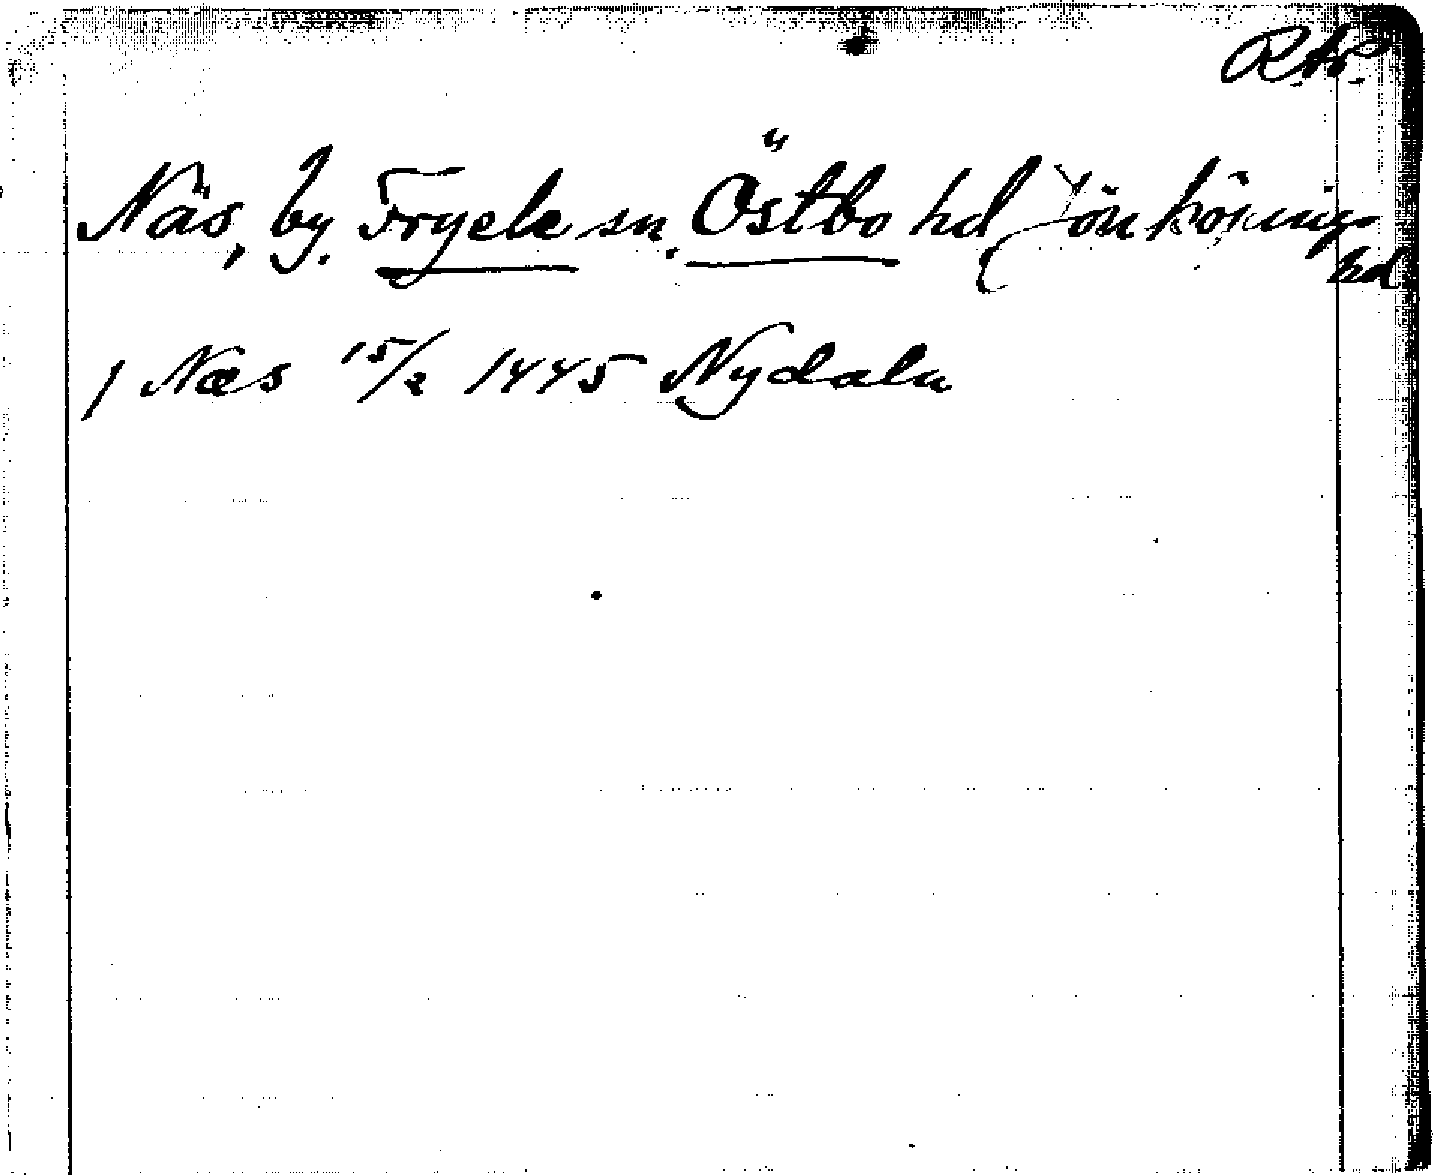 Näs, by. Tryele sn. Östbo hd Jönköpings
hd
1 Næs 15/2 1445 Nydala